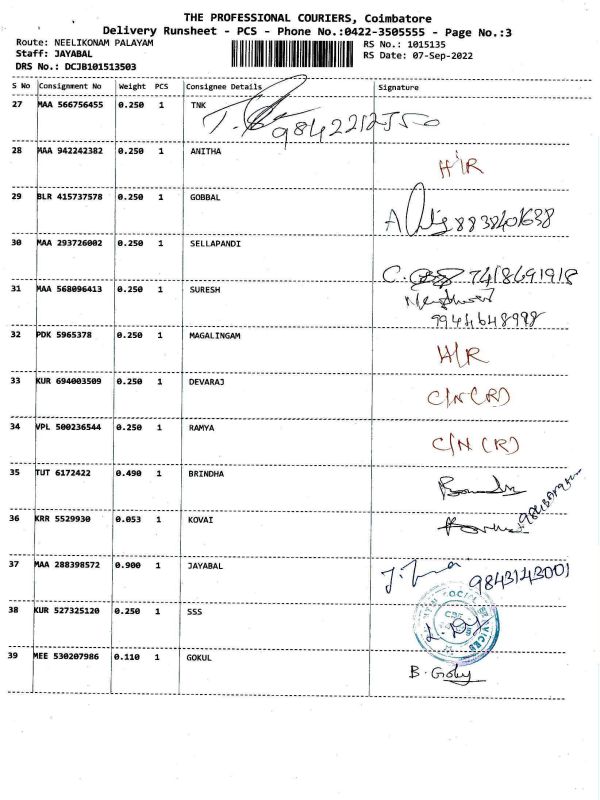 THE PROFESSIONAL COURIERS, Coimbatore
Delivery Runsheet - PCS - Phone No.:0422-3505555 - Page No.:3
Route: NEELIKONAM PALAYAM
Staff: JAYABAL
DRS No.: DCJB101513503
RS No.: 1015135
RS Date: 07-Sep-2022
S No Consignment No Weight PCS Consignee Details Signature
27 MAA 566756455 0.250 1 TNK 9842212550
28 MAA 942242382 0.250 1 ANITHA H/R
29 BLR 415737578 0.250 1 GOBBAL 8838401638
30 MAA 293726002 0.250 1 SELLAPANDI C. 7418691918
31 MAA 568096413 0.250 1 SURESH
9944648998
32 PDK 5965378 0.250 1 MAGALINGAM H/R
33 KUR 694003509 0.250 1 DEVARAJ C/N (R)
34 VPL 500236544 0.250 1 RAMYA C/N (R)
35 TUT 6172422 0.490 1 BRINDHA
36 KRR 5529930 0.053 1 KOVAI
37 MAA 288398572 0.900 1 JAYABAL 9843143001
38 KUR 527325120 0.250 1 SSS
39 MEE 530207986 0.110 1 GOKUL B. Goky